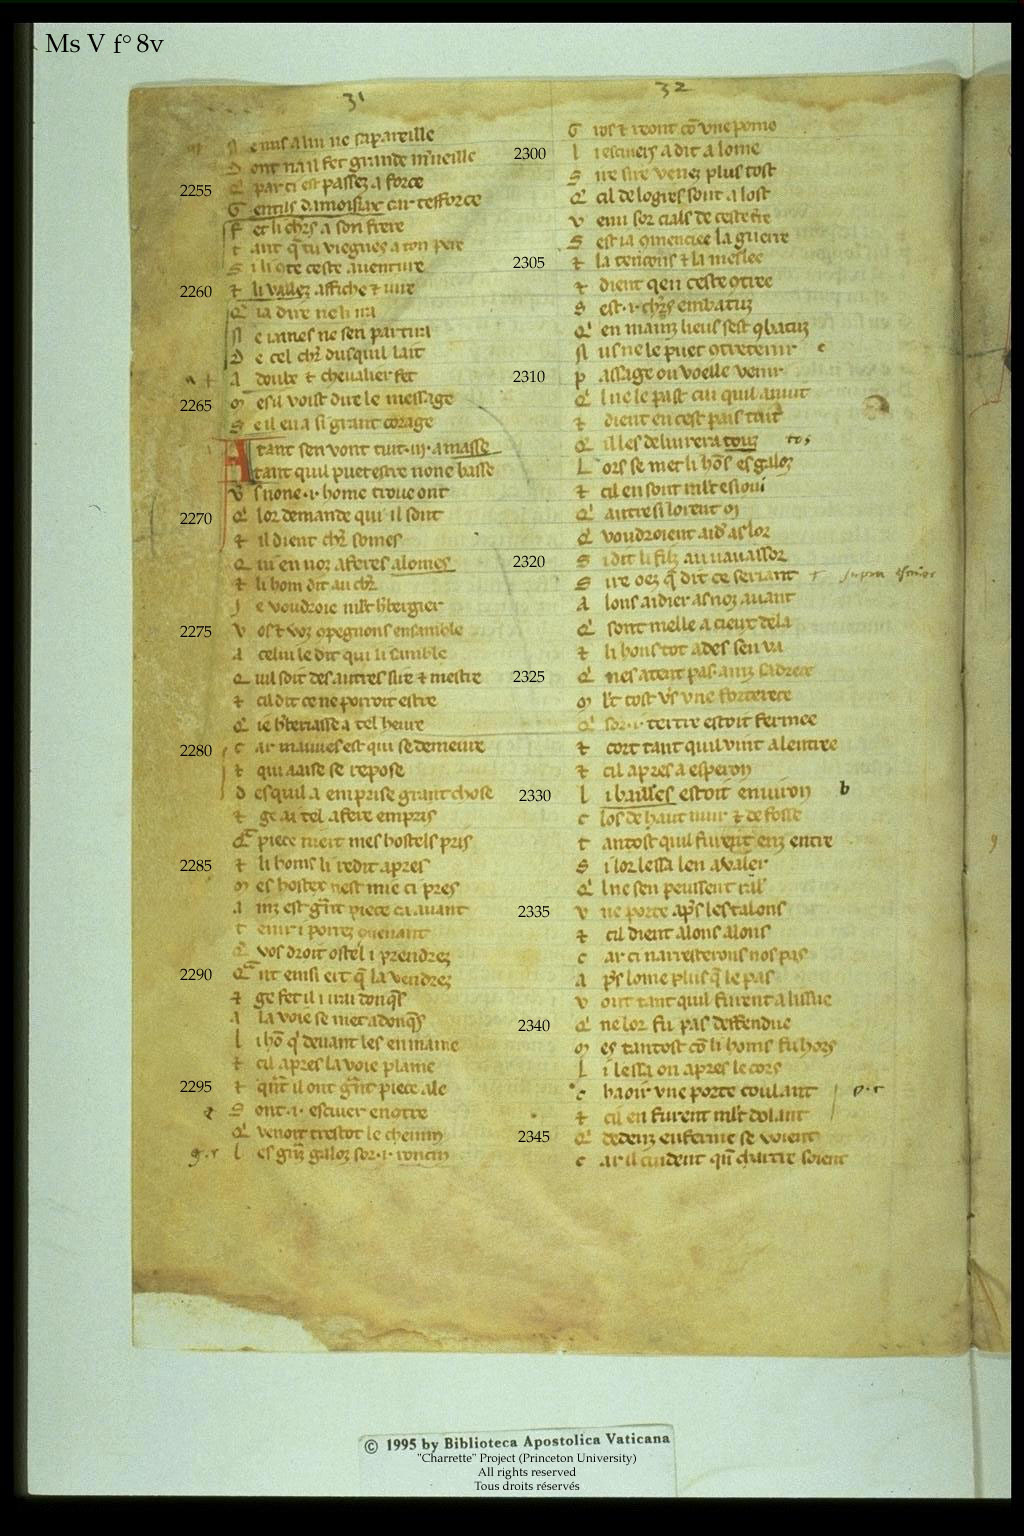 Ms V f° 8v
31
N e nus a lui ne sapareille
D ont na il fet grande m'ueille
2255
Q' par ci est passez a force
G entils damoisiax cur tesforce
F et li chrs a son frere
t ant q̃ tu viegnes a ton pere
S i li 9te ceste auenture
2260
⁊ li vallez affiche ⁊ iure
Q' ia dire ne li ira
N e iames ne sen partira
D e cel chr dusquil lait
A doube ⁊ cheualier fet
2265
m es il voist dire le message
S e il en a si grant corage
A tant sen vont tuit .iij. a masse
tant quil puet estre none basse
V s none .i. home troue ont
2270
Q' lor demande qui il sont
⁊ il dient chr somes
Q ui en noz aferes alomes
⁊ li hom dit au chr
J e voudroie mlt h'bergier
2275
v os ⁊ voz 9pegnons ensamble
a celui le dit qui li samble
Q uil soit des autres sire ⁊ mestre
⁊ cil dit ce ne porroit estre
Q' ie h'beriasse a tel heure
2280
c ar mauues est qui se demeure
⁊ qui aaise se repose
D es quil a emprise grant chose
⁊ ge ai tel afere empris
Q' piece niert mes hostels pris
2285
⁊ li homs li redit apres
m es hostex nest mie ci pres
a inz est gr̃nt piece ca auant
t enir i porrez 9uenant
Q' vos droit ostel i prendrez
2290
Q' nt ensi ert q̃ la vendrez
⁊ ge fet il i irai donq̃s
A la voie se met adonq̃s
l i hõ q' deuant les en maine
⁊ cil apres la voie plaine
2295
⁊ qñt il ont gr̃nt piece ale
S ont .i. escuier encontre
Q' venoit trestot le chemin
g.r l es granz galoz sor .i. roncin
32
G ros ⁊ reont cõ vne pome
2300
l i escuiers a dit a lome
S ire sire venez plus tost
Q' cil de logres sont a lost
v enu sor cials de ceste t're
S est ia 9menciee la guerre
2305
⁊ la tencons ⁊ la meslee
⁊ dient qen ceste 9tree
S est .i. chrs embatuz
Q' en mainz lieus sest 9batuz
N us ne le puet 9tretenir
2310
p assage ou voelle venir
Q' l ne le past cui quil anuit
⁊ dient en cest pais tuit
Q' il les deliuerra touz
L ors se met li hõs es galoz
⁊ cil en sont mlt esioui
Q' autresi lorent oi
Q' voudroient aid' as lor
2320
S i dit li filz au uauassor
S ire oez q̃ dit ce seriant
A lons aidier as noz auant
Q' sont melle a cieux dela
⁊ li hons tot ades sen va
2325
Q' nes atent pas. ainz sadrece
m lt tost v's vne forterece
Q' sor .i. tertre estoit fermee
⁊ cort tant quil vint a lentree
⁊ cil apres a esperon
2330
l i bailles estoit enuiron
b
c los de haut mur ⁊ de fosse
t antost quil furent enz entre
S i lor lessa len avaler
Q' l ne sen peussent raler
2335
v ne porte ap's les talons
⁊ cil dient alons alons
c ar ci narresterons nos pas
a p's lome plus q̃ le pas
v ont tant quil furent a lissue
2340
Q' ne lor fu pas deffendue
m es tantost cõ li homs fu hors
L i lessa on apres le cors
c haoir vne porte coulant
⁊ cil en furent mlt dolant
2345
Q' dedenz enferme se voient
c ar il cuident qu'ẽ chartre soient
© 1995 by Biblioteca Apostolica Vaticana
"Charrette" Project (Princeton University)
All rights reserved
Tous droits réservés